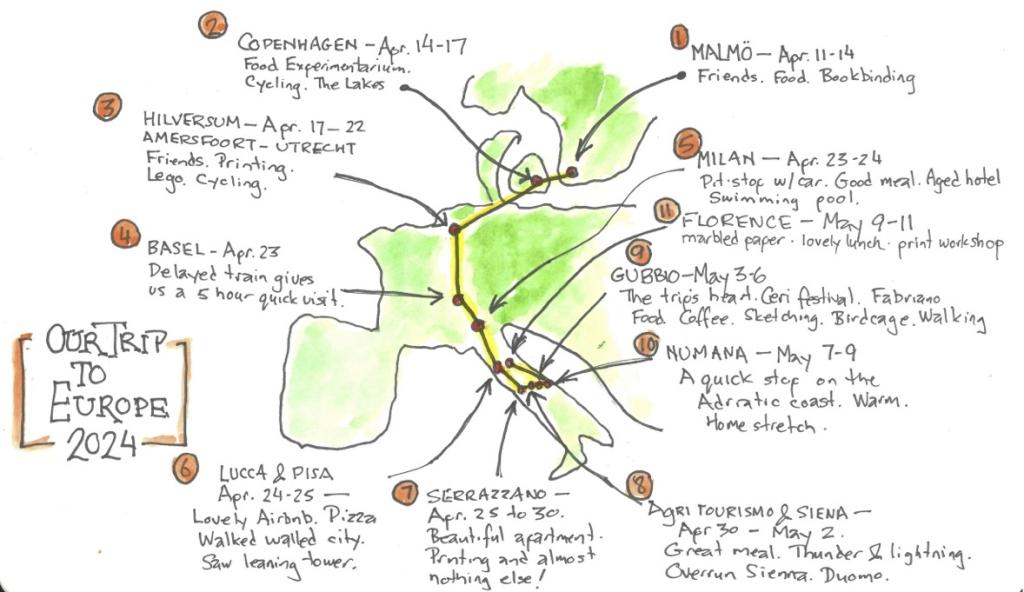 2
COPENHAGEN - Apr. 14-17
Food Experimentarium.
Cycling. The Lakes
1
MALMÖ - Apr. 11-14
Friends. Food. Bookbinding
3
HILVERSUM - Apr. 17-22
AMERSFOORT - UTRECHT
Friends. Printing.
Lego. Cycling.
5
MILAN - Apr. 23-24
Pit-stop w/car. Good meal. Aged hotel
Swimming pool.
11
FLORENCE - May 9-11
marbled paper · lovely lunch · print workshop
4
BASEL - Apr. 23
Delayed train gives
us a 5 hour quick visit.
9
GUBBIO - May 3-6
The trips heart. Ceri festival. Fabriano
Food. Coffee. Sketching. Birdcage. Walking
OUR TRIP
TO
EUROPE
2024
10
NUMANA - May 7-9
A quick stop on the
Adrratic coast. Warm.
Home stretch.
6
LUCCA & PISA
Apr. 24-25 -
Lovely Airbnb. Pizza
Walked walled city.
Saw leaning tower.
7
SERRAZZANO -
Apr. 25 to 30.
Beautiful apartment.
Printing and almost
nothing else!
8
AGRI TOURISMO & SIENA -
Apr 30 - May 2.
Great meal. Thunder & lightning.
Overrun Sienna. Duomo.